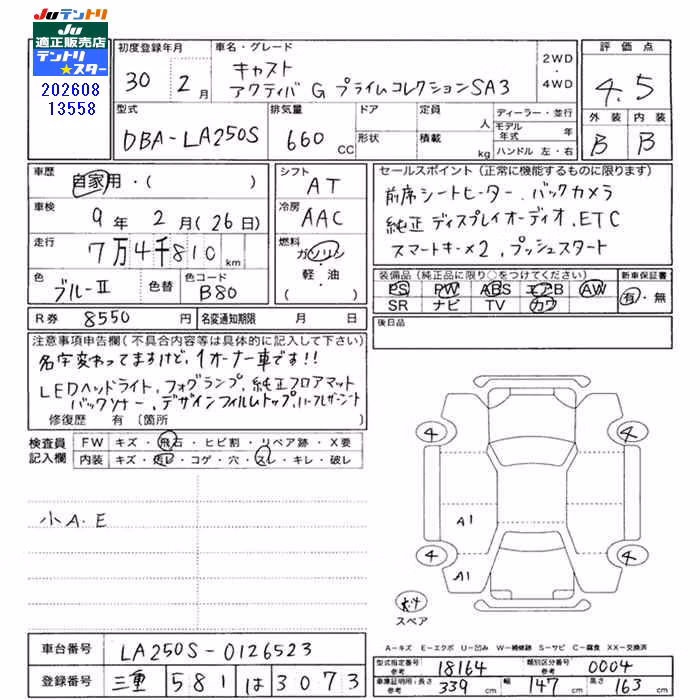 JUテントリ
JU
適正販売店
テントリ
★スター
202608
13558
初度登録年月
30 2月
車名・グレード
キャスト
アクティバ G プライムコレクションSA3
2WD
・
4WD
評価点
4.5
外装 内装
B B
型式
DBA-LA250S
排気量
660 CC
ドア
形状
定員 人
積載 kg
ディーラー・並行
モデル年式 年
ハンドル 左・右
車歴
自家用・( )
車検
9年 2月(26日)
走行
7万4千810km
色
ブルーⅡ
色替
色コード
B80
シフト
AT
冷房
AAC
燃料
ガソリン
・
軽・油
( )
セールスポイント(正常に機能するものに限ります)
前席シートヒーター、バックカメラ
純正ディスプレイオーディオ、ETC
スマートキー×2、プッシュスタート
装備品(純正品に限り○をつけてください)
PS PW ABS エアB AW
SR ナビ TV カワ
新車保証書
有・無
R券 8550円
名変通知期限 月 日
後日品
注意事項申告欄(不具合内容等は具体的に記入して下さい)
名字変わってますけど、1オーナー車です!!
LEDヘッドライト、フォグランプ、純正フロアマット
バックソナー、デザインフィルムトップ、
修復歴 有 〔箇所 〕
検査員
記入欄
FW キズ・飛石・ヒビ割・リペア跡・X要
内装 キズ・汚レ・コゲ・穴・スレ・キレ・破レ
小A.E
4 4
A1
4 4
A1
スペア
A-キズ E-エクボ U-凹み W-補修跡 S-サビ C-腐食 XX-交換済
車台番号 LA250S-0126523
登録番号 三重 581 は 3073
型式指定番号 参考 18164
類別区分番号 参考 0004
車庫証明用:長さ 参考 339 cm
幅 147 cm
高さ 163 cm